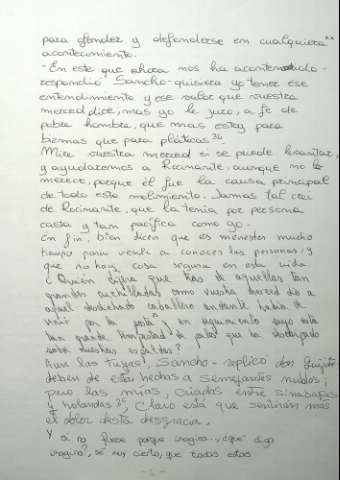 para ofender y defenderse en cualquiera
acontecimiento.
-En este que ahora nos ha acontecido-
respondió Sancho-quisiera yo tener ese
entendimiento y ese valor que vuestra
merced dice, mas yo le juro, a fe de
pobre hombre, que mas estoy para
bizmas que para pláticas.
Mire vuestra merced si se puede levantar,
y ayudaremos a Rocinante, aunque no lo
merece, porque él fue la causa principal
de todo este molimiento. Jamas tal creí
de Rocinante, que la tenia por persona
casta y tan pacífica como yo.
En fin, bien dicen que es menester mucho
tiempo para venir a conocer las personas, y
que no hay cosa segura en esta vida.
¿Quién dijera que tras de aquellas tan
grandes cuchilladas como vuestra merced dio a
aquel desdichado caballero andante había de
venir por la posta y en seguimiento suyo esta
tan grande tempestad de palos que ha descargado
sobre nuestras espaldas?
Aun las tuyas, Sancho-replicó don Quijote
deben de estar hechas a semejantes nublos;
pero las mías, criadas entre sinabafas
y holandas, claro está que sentirán más
el dolor desta desgracia.
Y si no fuese porque imagino..., ¿qué digo
imagino?, sé muy cierto, que todas estas